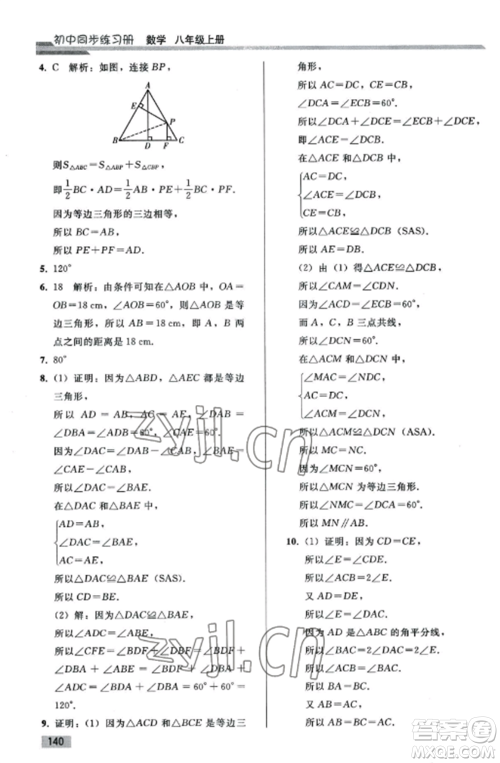 初中同步练习册 数学 八年级上册
4. C 解析：如图，连接BP，
A
E
P
B
D
F
C
则S△ABC=S△ABP+S△BPC，
即1/2BC·AD=1/2AB·PE+1/2BC·PF.
因为等边三角形的三边相等，
所以BC=AB，
所以PE+PF=AD.
5. 120°
6. 18 解析：由条件可知在△AOB中，OA=
OB=18 cm，∠AOB=60°，
所以△AOB为等边三角形，
所以AB=OA=OB=18 cm，即A，B两
点之间的距离是18 cm.
7. 80°
8. (1) 证明：因为△ABD，△AEC都是等边
三角形，
所以AD=AB，AC=AE，∠DAB=
∠DBA=∠ADB=60°，∠CAE=60°.
所以∠DAC=∠BAE.
在△DAC和△BAE中，
AD=AB，
∠DAC=∠BAE，
AC=AE，
所以△DAC≌△BAE (SAS).
所以CD=BE.
(2) 解：因为△DAC≌△BAE，
所以∠ADC=∠ABE.
所以∠CFE=∠BDF+∠DBF=
∠BDF+∠DBA+∠ABF=∠BDF+
∠DBA+∠ADC=∠BDA+∠DBA=
60°+60°=
120°
9. 证明：(1) 因为△ACD和△BCE是等边三
角形，
所以AC=DC，CE=CB，
∠DCA=∠ECB=60°.
所以∠DCA+∠DCE=∠ECB+∠DCE.
所以∠ACE=∠DCB.
在△ACE与△DCB中，
AC=DC，
∠ACE=∠DCB，
CE=CB，
所以△ACE≌△DCB (SAS).
所以AE=BD.
(2) 由(1)得△ACE≌△DCB，
所以∠CAM=∠CDN.
因为∠ACD=∠ECB=60°，
而A，C，B三点共线，
所以∠DCN=60°.
在△ACM与△DCN中，
∠MAC=∠NDC，
AC=DC，
∠ACM=∠DCN=60°，
所以△ACM≌△DCN (ASA).
所以MC=NC.
因为∠MCN=60°，
所以△MCN为等边三角形.
所以∠NMC=∠DCN=60°.
所以∠NMC=∠DCA.
所以MN∥AB.
10. (1) 证明：因为CD=CE，
所以∠E=∠CDE.
所以∠ACB=2∠E.
又AD=DE，
所以∠E=∠DAC.
又AD是△ABC的角平分线，
所以∠BAC=2∠DAC=2∠E.
所以∠ACB=∠BAC.
所以BA=BC.
又AB=AC，
所以AB=BC=AC.
140
zyjl.cn
zyjl.cn
答案圈
MXQE.COM